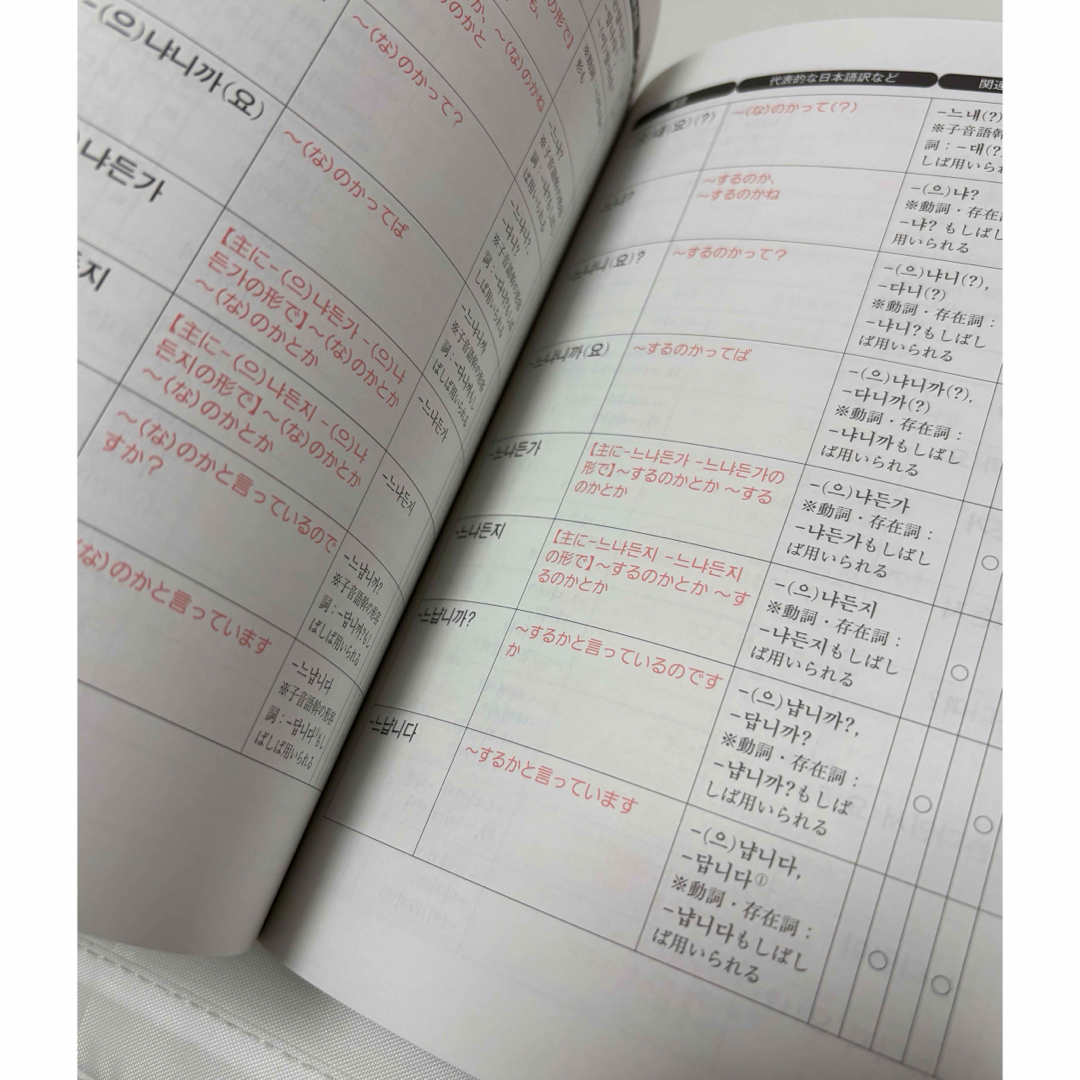 か、～(な)のかね
も、
のかと
～(な)のかって？
-(으)냐니까(요)
～(な)のかってば
냐든가
【主に-(으)냐든가 -(으)냐
든가の形で】～(な)のかとか
～(な)のかとか
든지
【主に-(으)냐든지 -(으)냐
든지の形で】～(な)のかとか
～(な)のかとか
～(な)のかと言っているので
すか？
(な)のかと言っています
-느냐?
-느냐니?
-다니?
※子音語幹の形容
-느냐니까
※子音語幹の形容
詞：-다니까も
しばしば用いられる
-느냐든가
-느냐든지
-느냡니까?
※子音語幹の形容
詞：-답니까?もし
ばしば用いられる
-느냡니다
※子音語幹の形容
詞：-답니다もし
ばしば用いられる
代表的な日本語訳など
関連
(요)(?)
～(な)のかって(？)
-느내(?)
※子音語幹
詞：-대(?)
しば用いられ
～するのか、
～するのかね
-(으)냐?
※動詞・存在詞
-냐? もしばしば
用いられる
냐니(요)?
～するのかって？
-(으)냐니(?),
-다니(?)
※動詞・存在詞：
-냐니?もしばし
ば用いられる
-느냐니까(요)
～するのかってば
-(으)냐니까(?),
-다니까(?)
※動詞・存在詞：
-냐니까もしばし
ば用いられる
-느냐든가
【主に-느냐든가 -느냐든가の
形で】～するのかとか ～する
のかとか
-(으)냐든가
※動詞・存在詞：
-냐든가もしばし
ば用いられる
○
-느냐든지
【主に-느냐든지 -느냐든지
の形で】～するのかとか ～す
るのかとか
-(으)냐든지
※動詞・存在詞：
-냐든지もしばし
ば用いられる
○
-느냡니까?
～するかと言っているのです
か
-(으)냡니까?,
-답니까?
※動詞・存在詞：
-냡니까?もしば
しば用いられる
○ ○
-느냡니다
～するかと言っています
-(으)냡니다,
-답니다①
※動詞・存在詞：
-냡니다もしばし
ば用いられる
○ ○